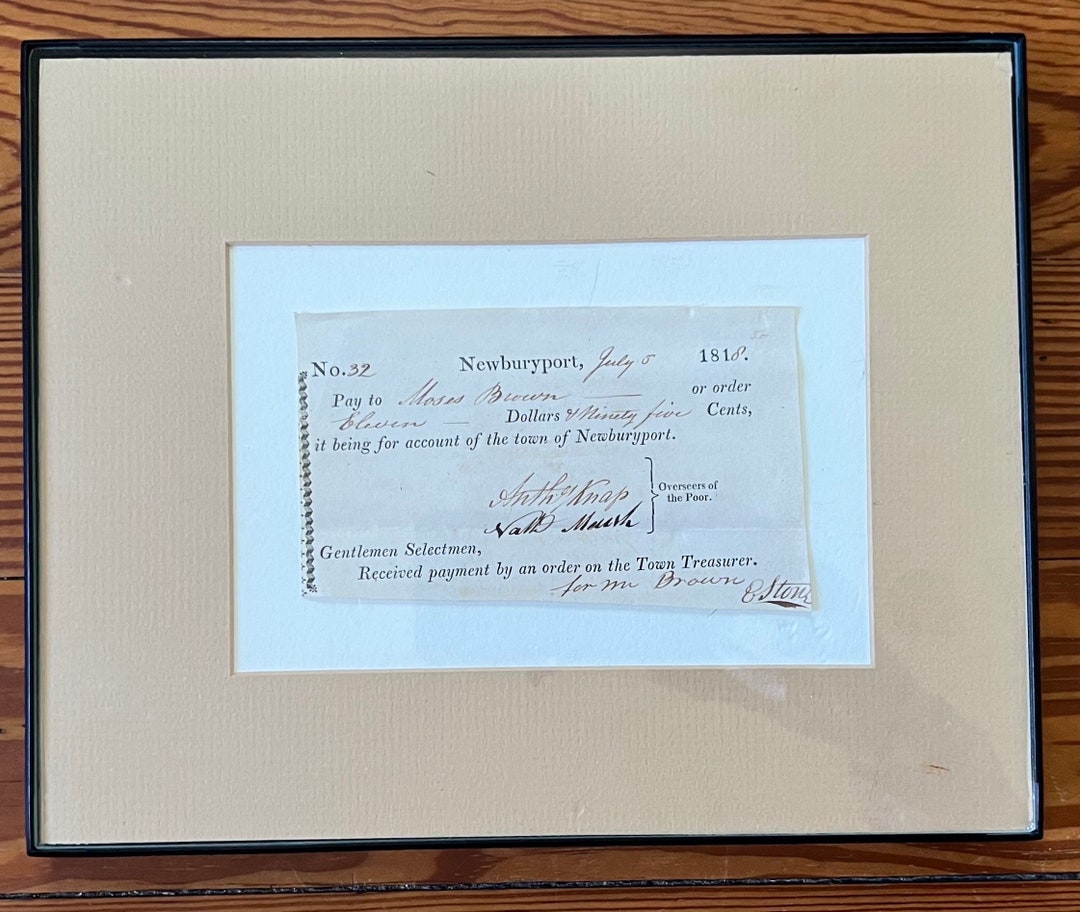 No. 32 Newburyport, July 5 1818.
Pay to Moses Brown — or order
Eleven — Dollars & Ninety five Cents,
it being for account of the town of Newburyport.
Anthy Knap
Nathl Marsh
Overseers of
the Poor.
Gentlemen Selectmen,
Received payment by an order on the Town Treasurer.
for Mr Brown E Stone